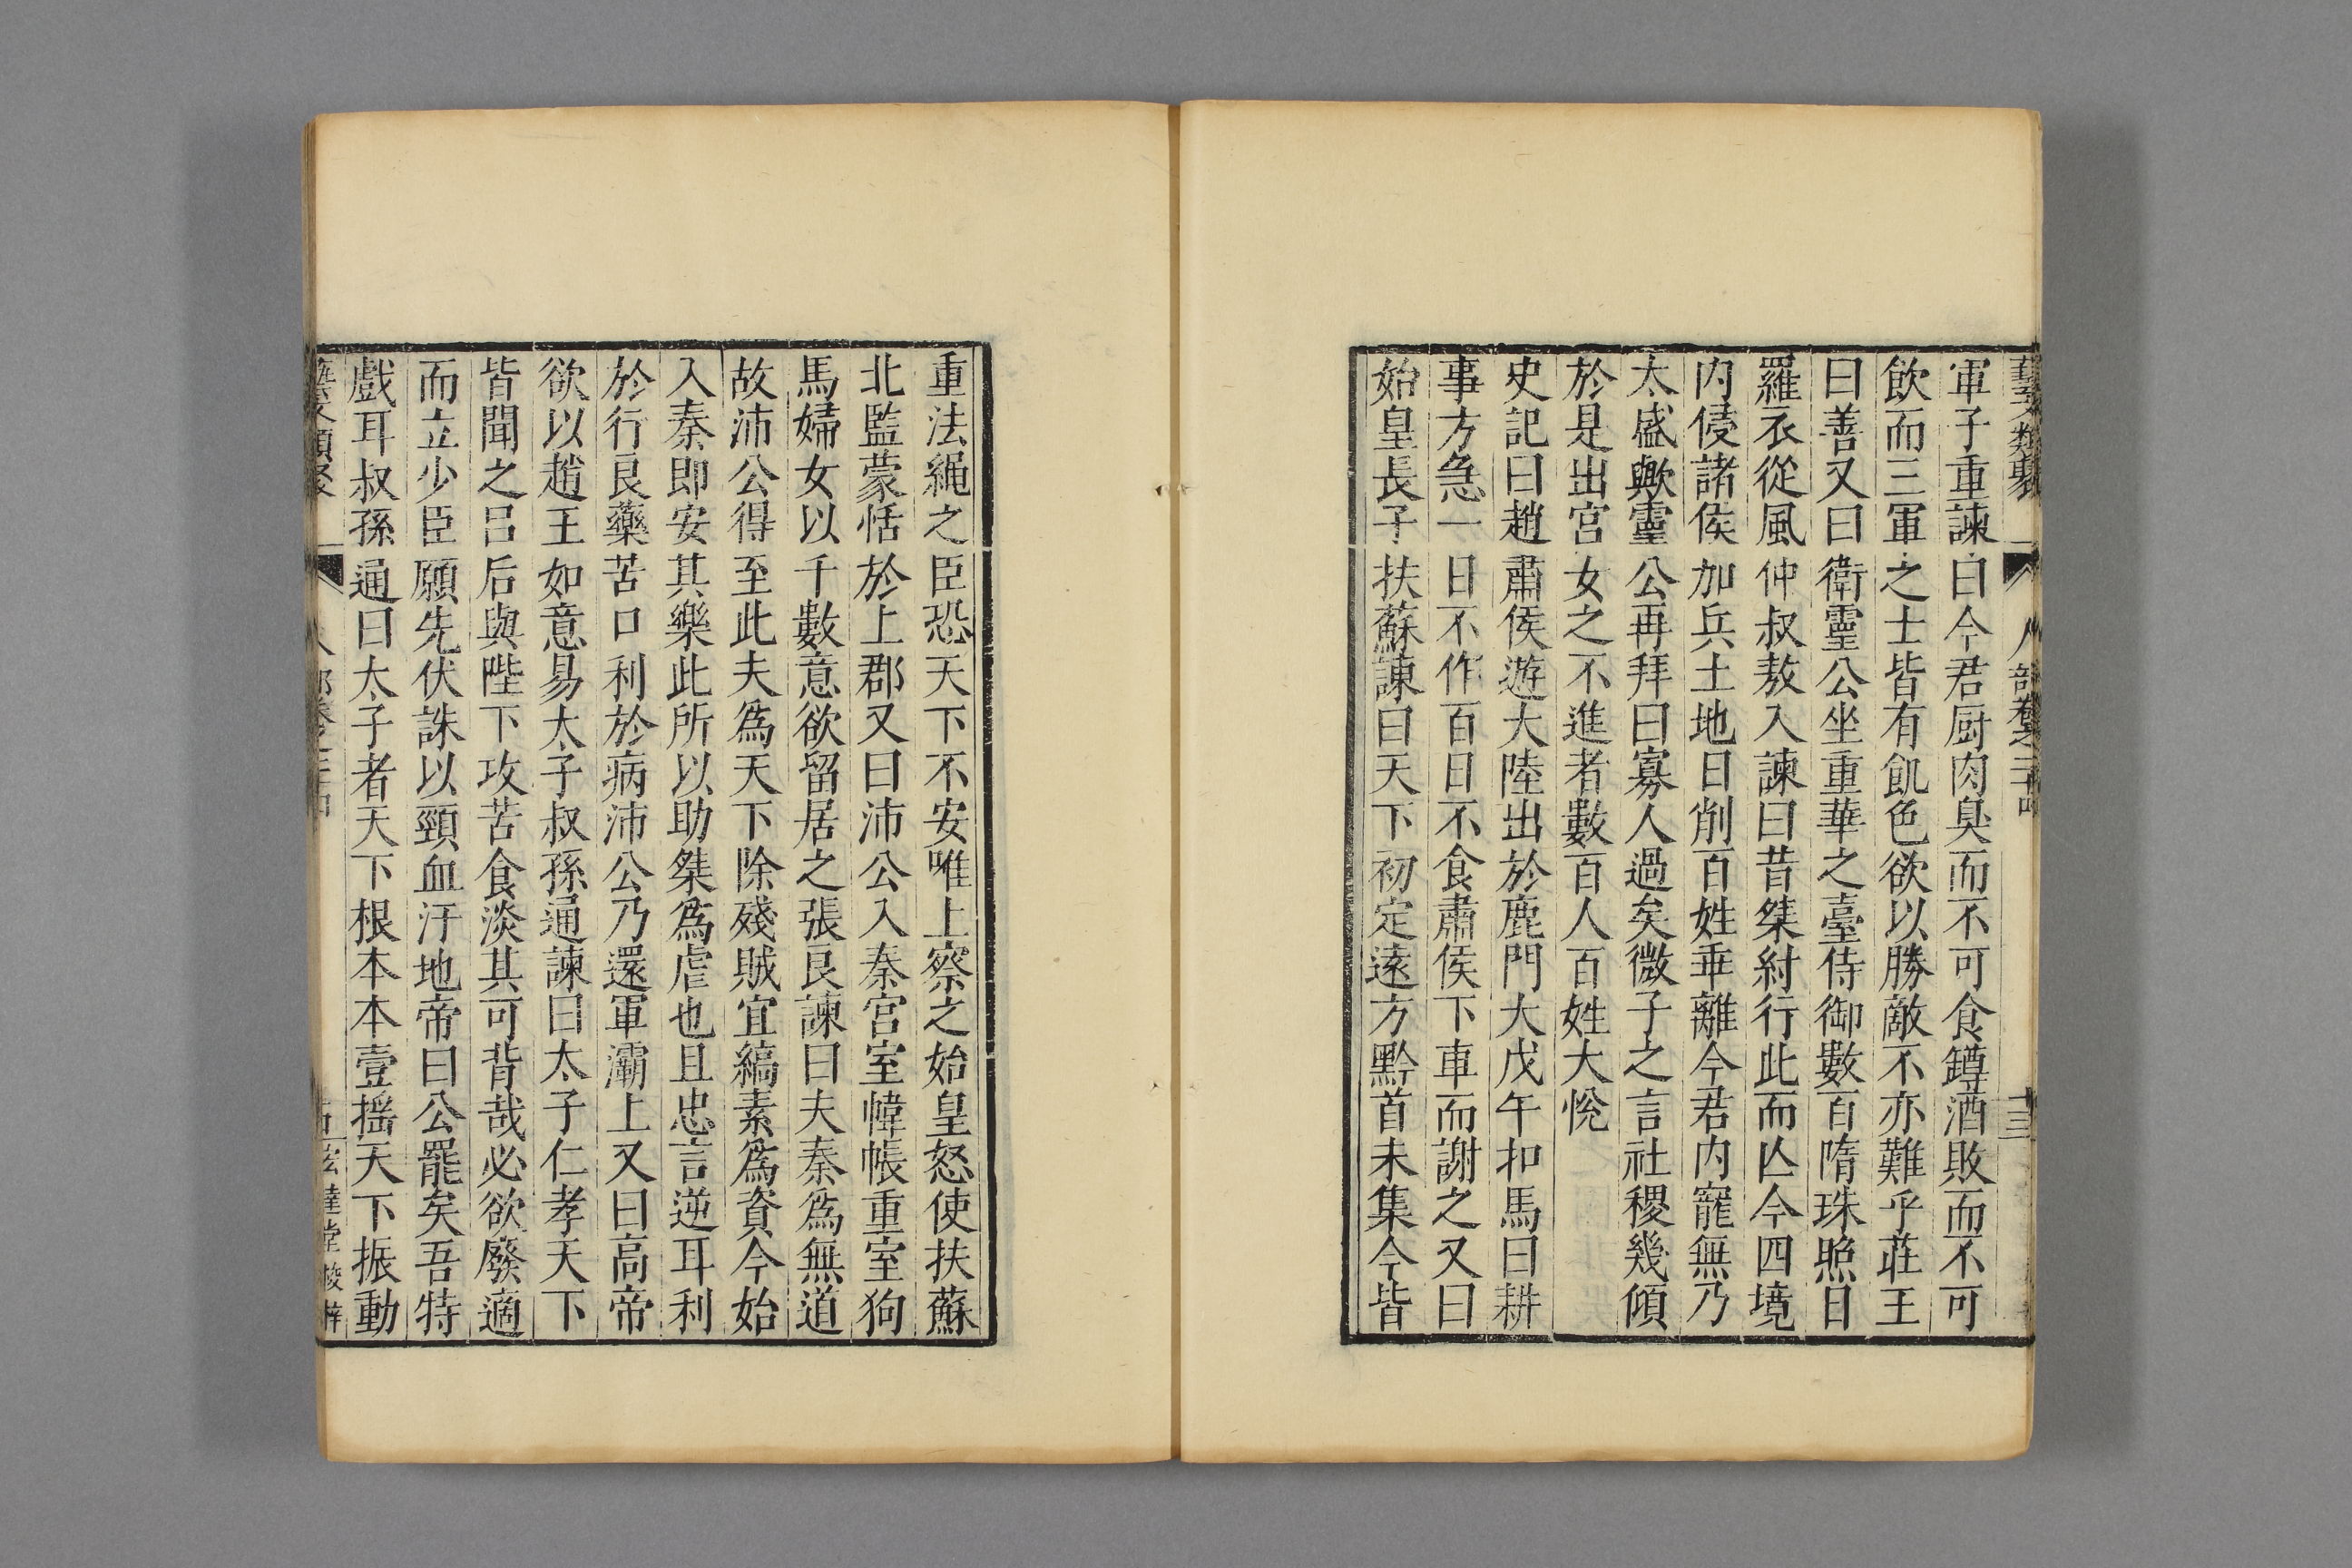 藝文類聚 人部卷二十四 十三
軍子重諫曰今君厨肉臭而不可食罇酒敗而不可
飲而三軍之士皆有飢色欲以勝敵不亦難乎莊王
曰善又曰衛靈公坐重華之臺侍御數百隋珠照日
羅衣從風仲叔敖入諫曰昔桀紂行此而亾今四境
内侵諸侯加兵土地日削百姓乖離今君内寵無乃
太盛歟靈公再拜曰寡人過矣微子之言社稷幾傾
於是出宮女之不進者數百人百姓大悅
史記曰趙肅侯遊大陸出於鹿門大戊午扣馬曰耕
事方急一日不作百日不食肅侯下車而謝之又曰
始皇長子扶蘇諫曰天下初定遠方黔首未集今皆
重法繩之臣恐天下不安唯上察之始皇怒使扶蘇
北監蒙恬於上郡又曰沛公入秦宮室幃帳重室狗
馬婦女以千數意欲留居之張良諫曰夫秦爲無道
故沛公得至此夫爲天下除殘賊宜縞素爲資今始
入秦即安其樂此所以助桀爲虐也且忠言逆耳利
於行良藥苦口利於病沛公乃還軍灞上又曰高帝
欲以趙王如意易太子叔孫通諫曰太子仁孝天下
皆聞之呂后與陛下攻苦食淡其可背哉必欲廢適
而立少臣願先伏誅以頸血汙地帝曰公罷矣吾特
戲耳叔孫通曰太子者天下根本本壹搖天下振動
藝文類聚 人部卷二十四